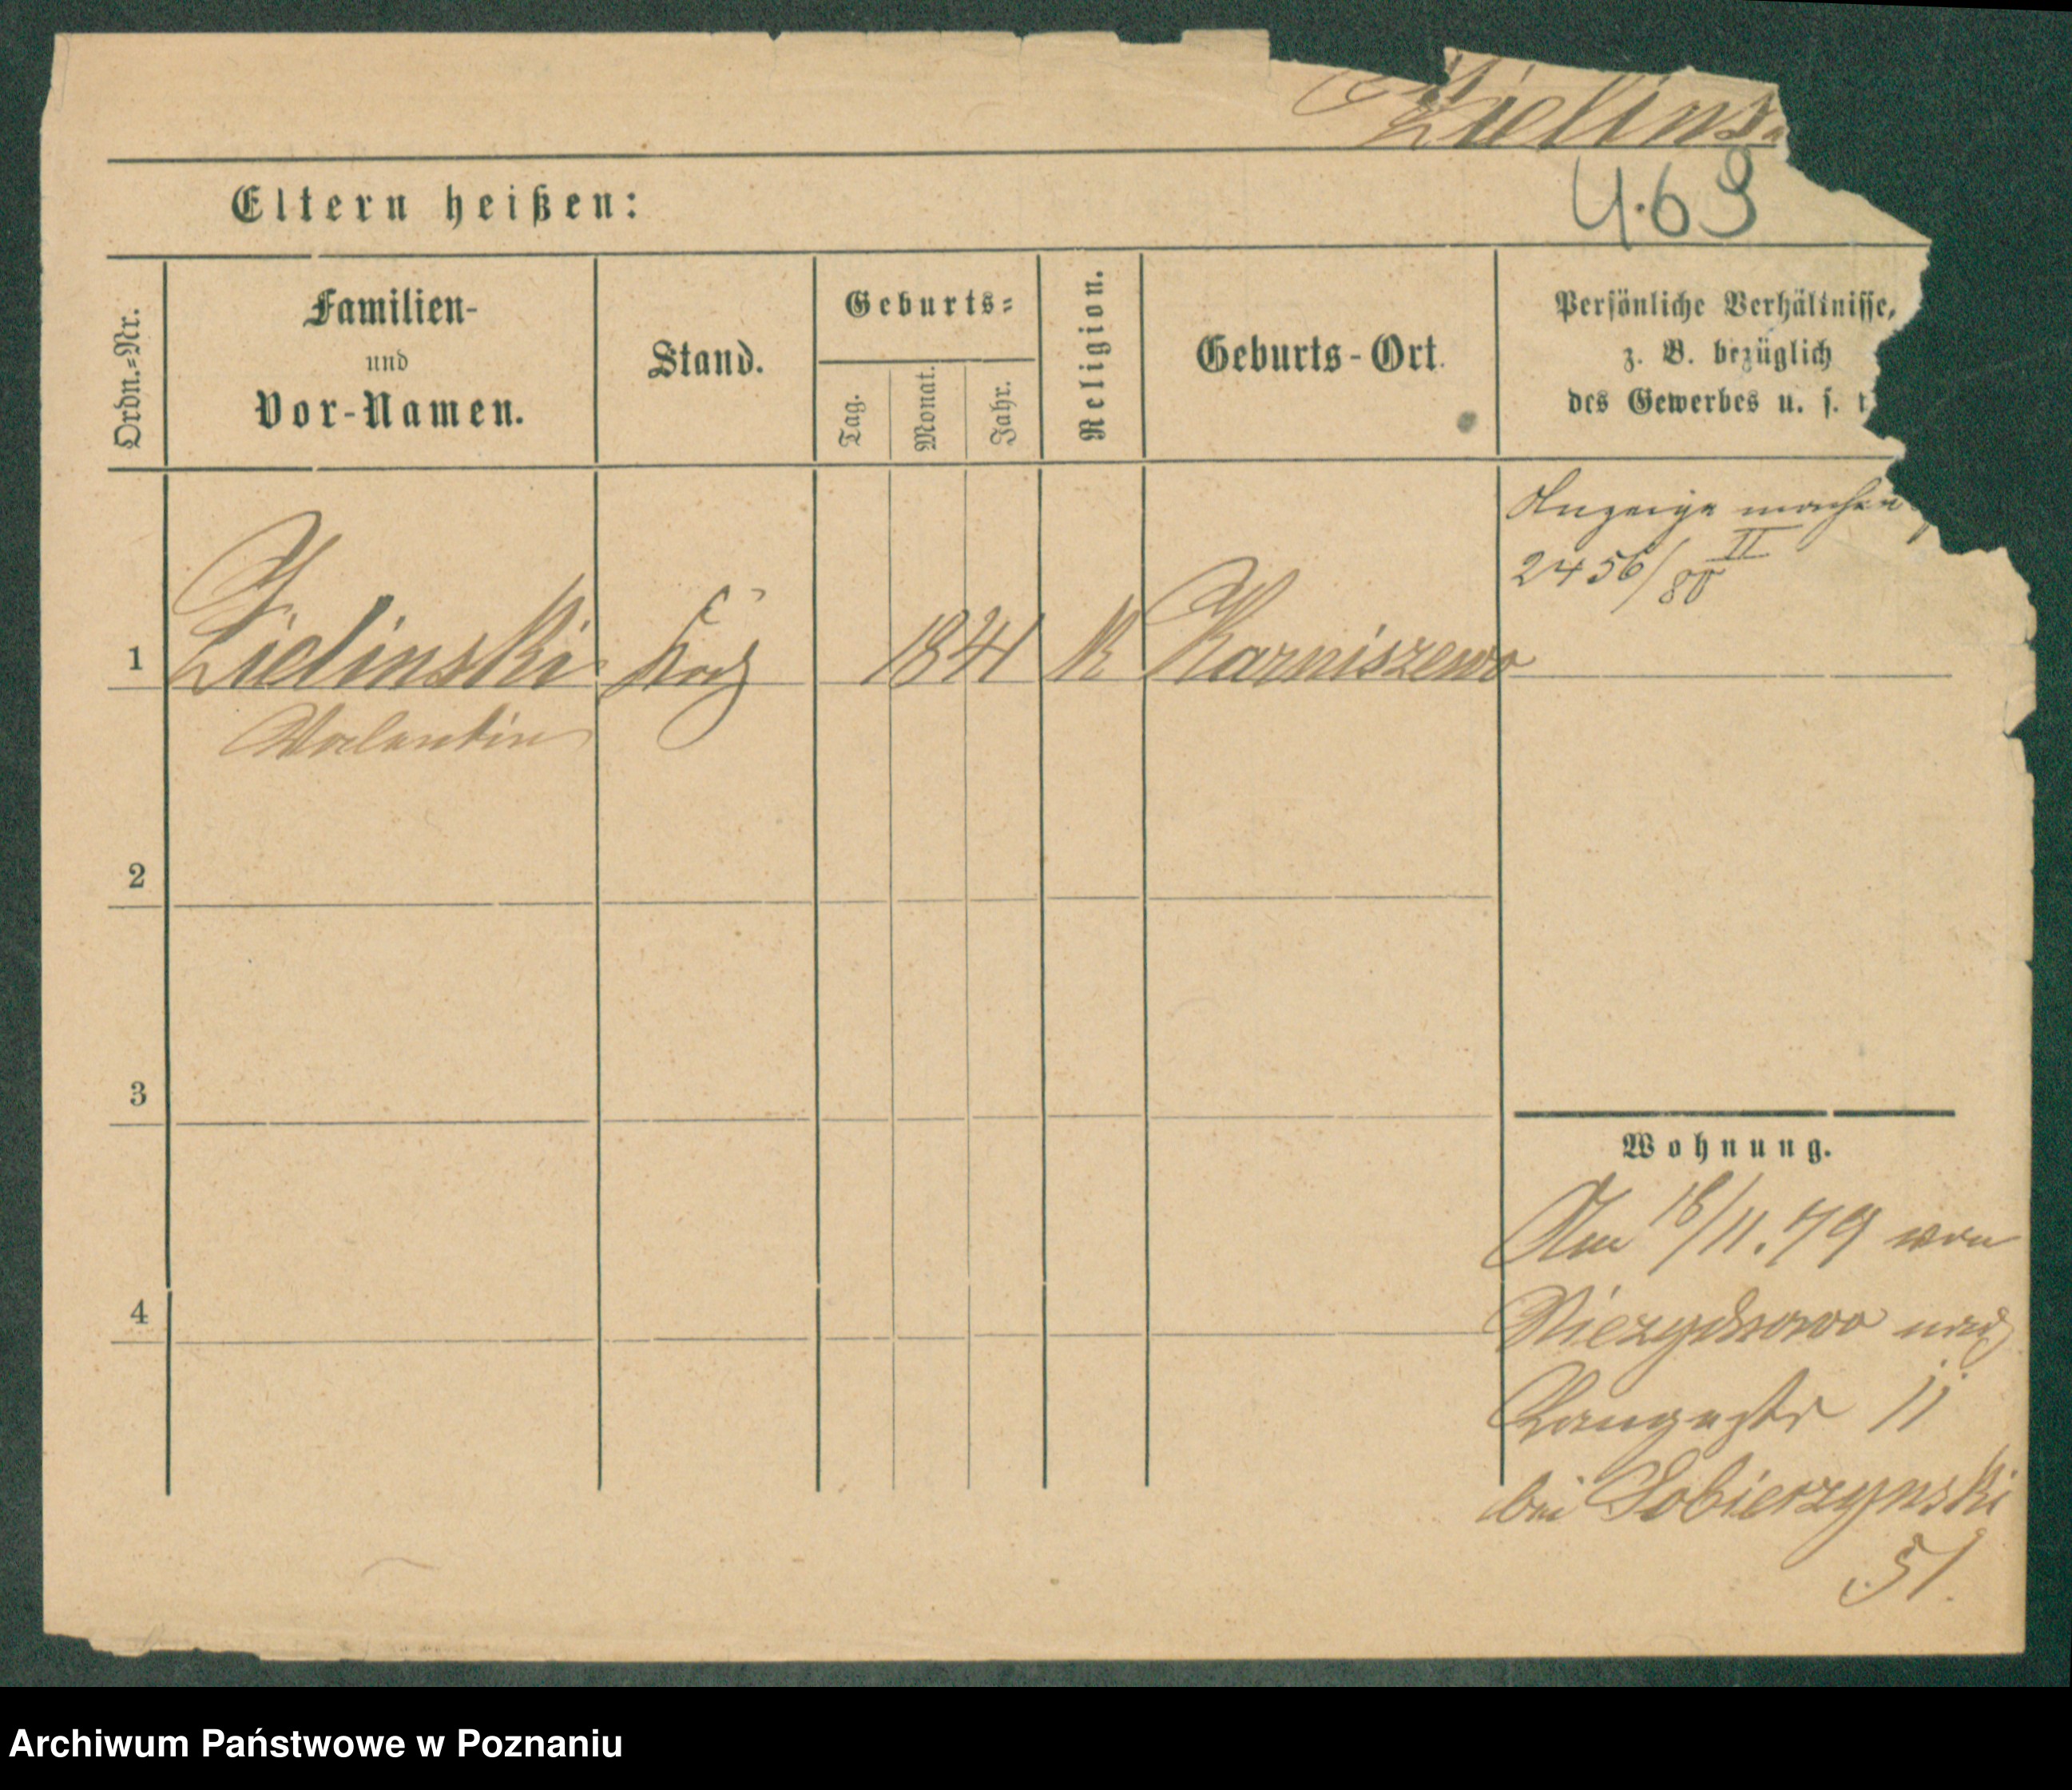 Zielins
4.63
Eltern heißen:
Ordn.-Nr.
Familien-
und
Vor-Namen.
Stand.
Geburts-
Tag.
Monat.
Jahr.
Religion.
Geburts-Ort.
Persönliche Verhältnisse,
z. B. bezüglich
des Gewerbes u. s.
Anzeige machen
2456/II 80
1 Zielinski Koch 1841 K Karniszewo
Valentin
2
3
4
Wohnung.
Am 18/11. 79 von
nach
Langestr 11
bei Sobierzynski
51.
Archiwum Państwowe w Poznaniu